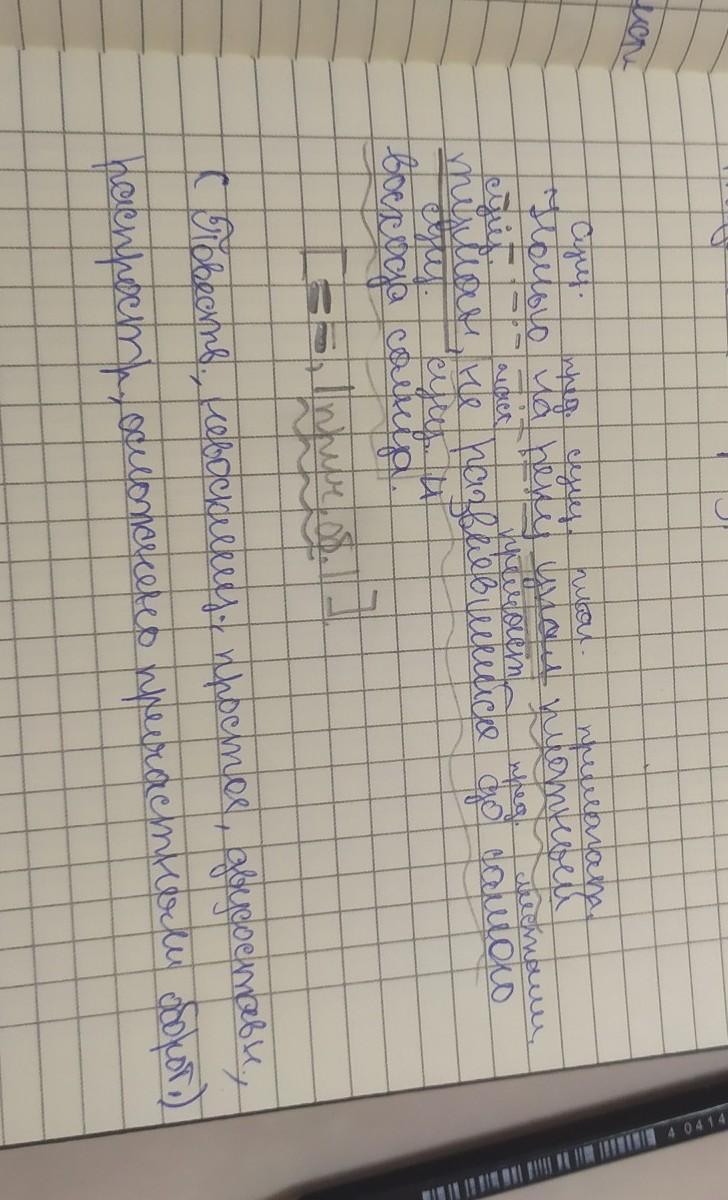 сущ. пред. сущ. глаг. прилагат.
Ночью на реку упал плотный
сущ. част. причаст. пред. местоим.
туман, не развеявшийся до самого
сущ. сущ.
восхода солнца.
[= –, |прич. об.|].
(Повеств., невосклиц., простое, двусоставн.,
распростр., осложнено причастным оборот.)
40414